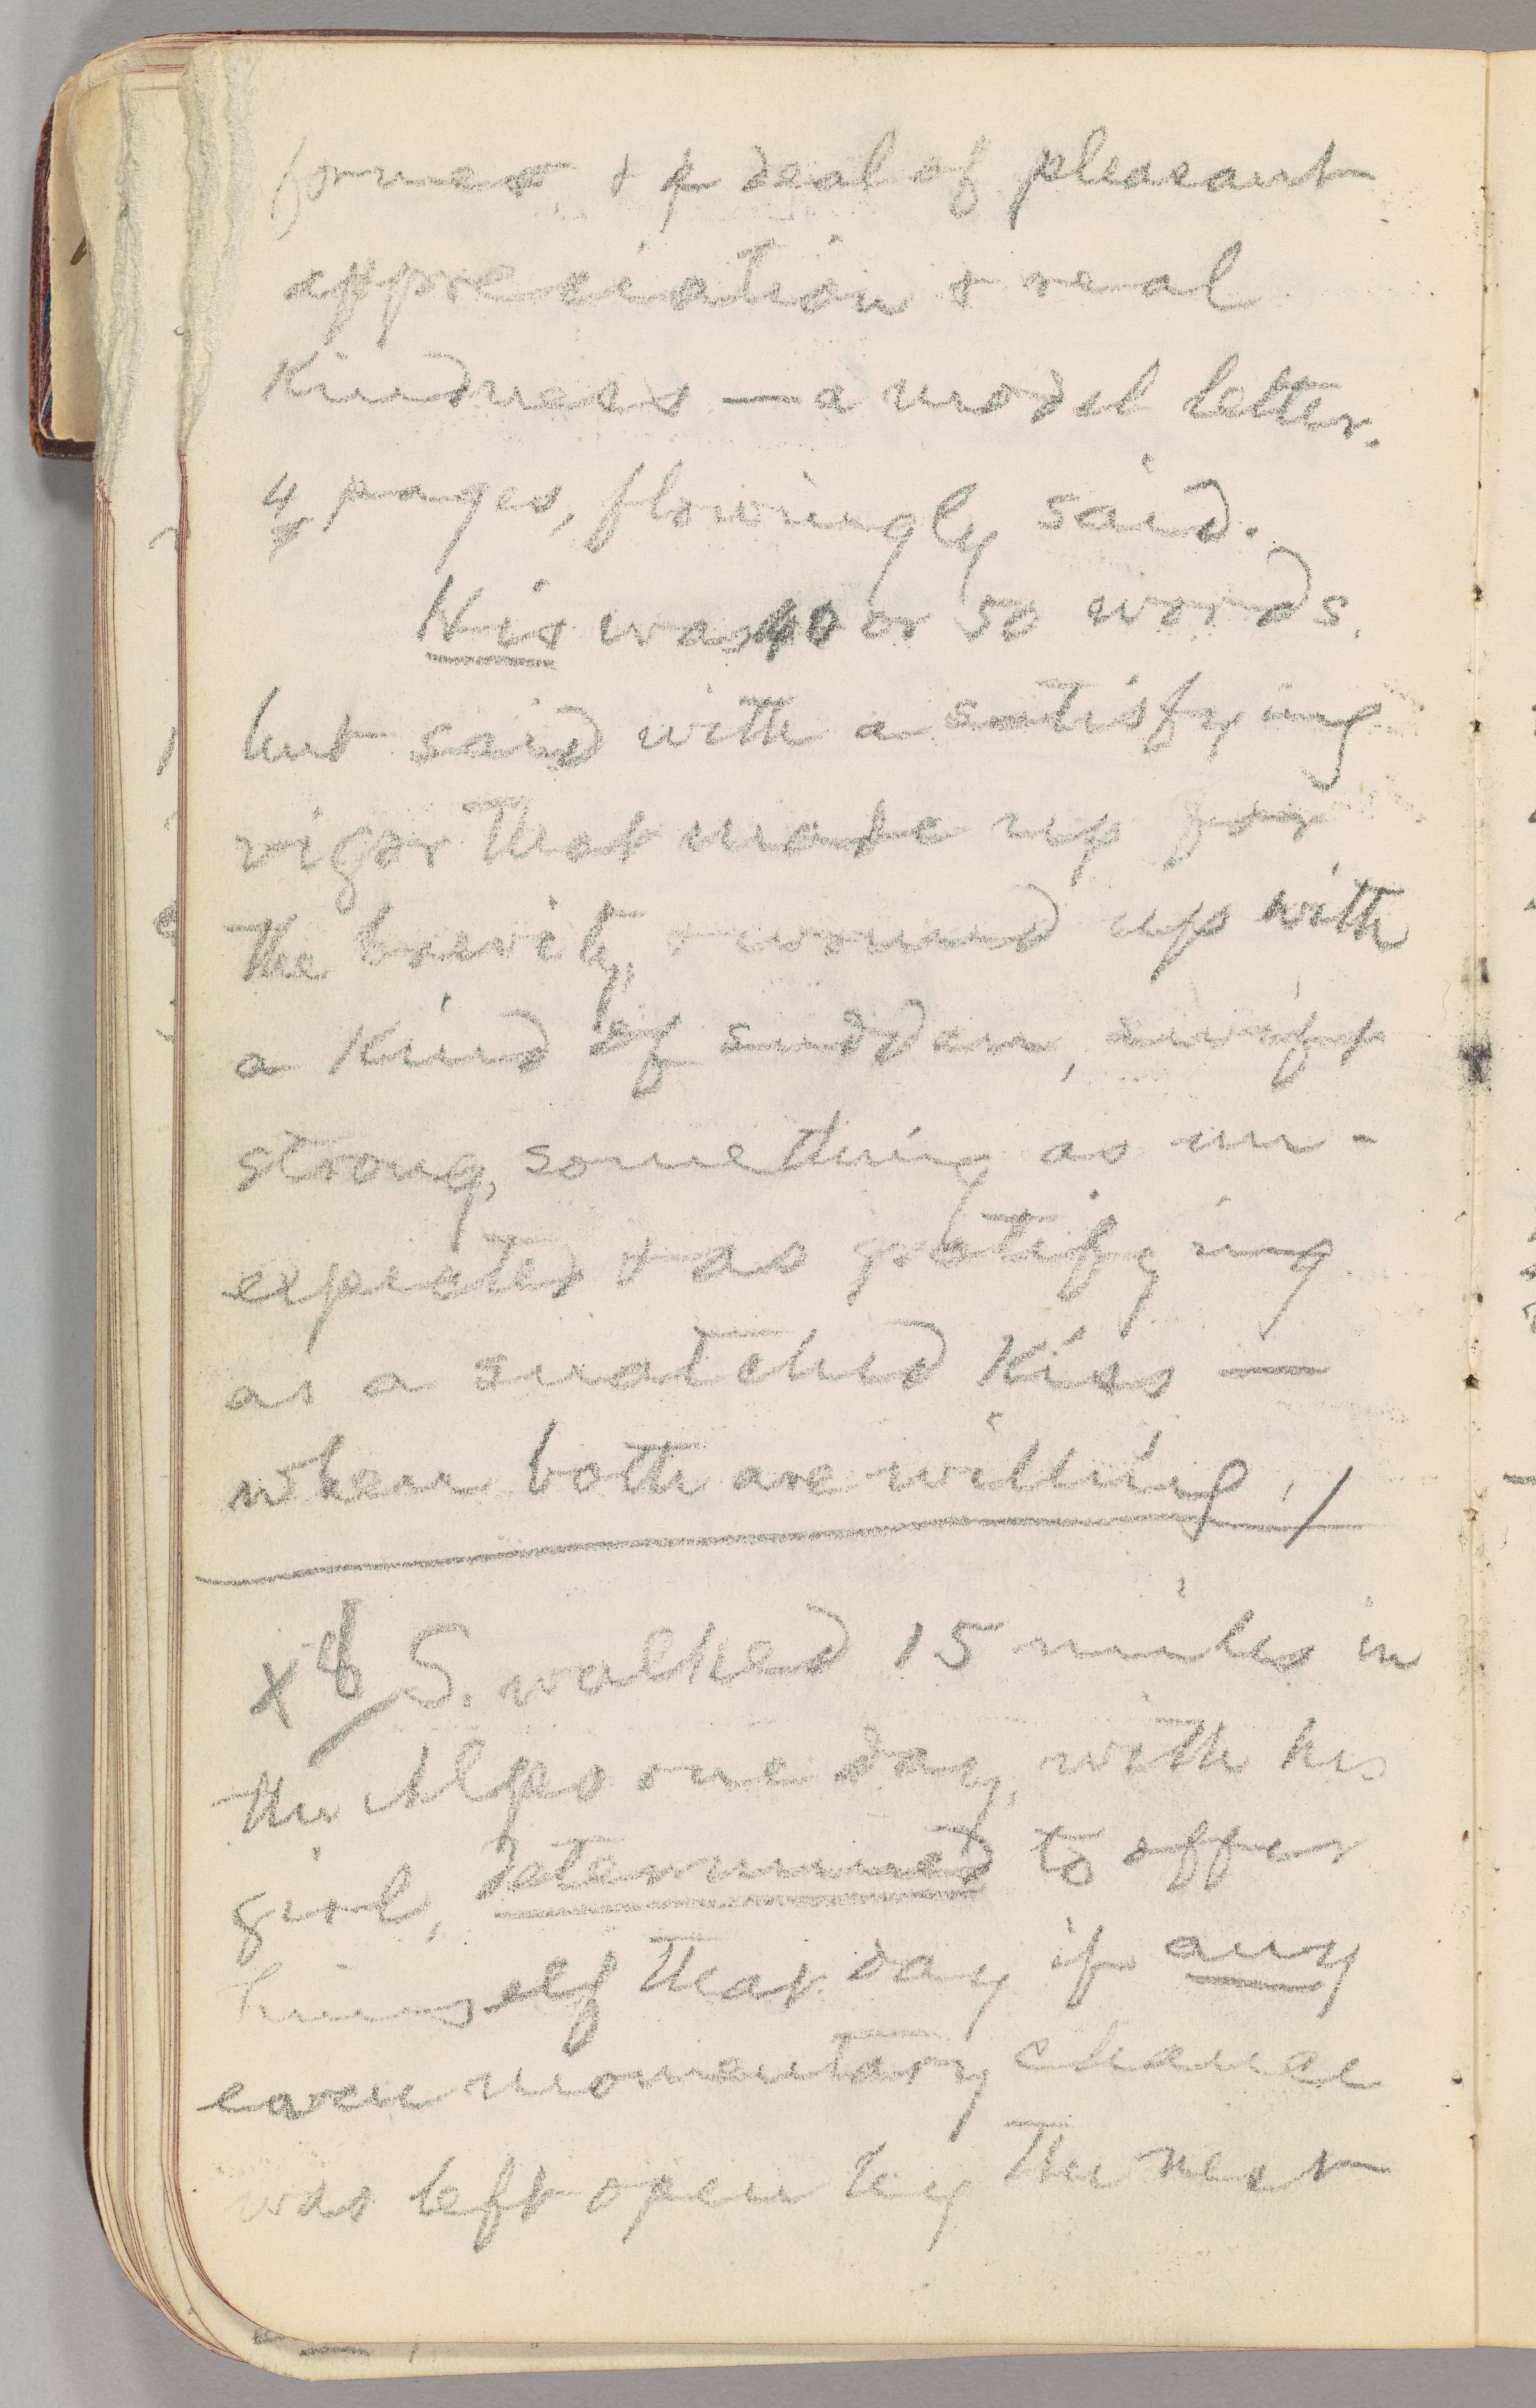 former, & a deal of pleasant
appreciation & real
kindness — a model letter.
4 pages, flowingly said.
His was 40 or 50 words,
but said with a satisfying
vigor that made up for
the brevity, & wound up with
a kind of sudden, swift
strong, something as un-
expected & as gratifying
as a snatched kiss —
when both are willing.
S. walked 15 miles in
the Alps one day, with his
girl, determined to offer
himself that day if any
even momentary chance
was left open by the rest